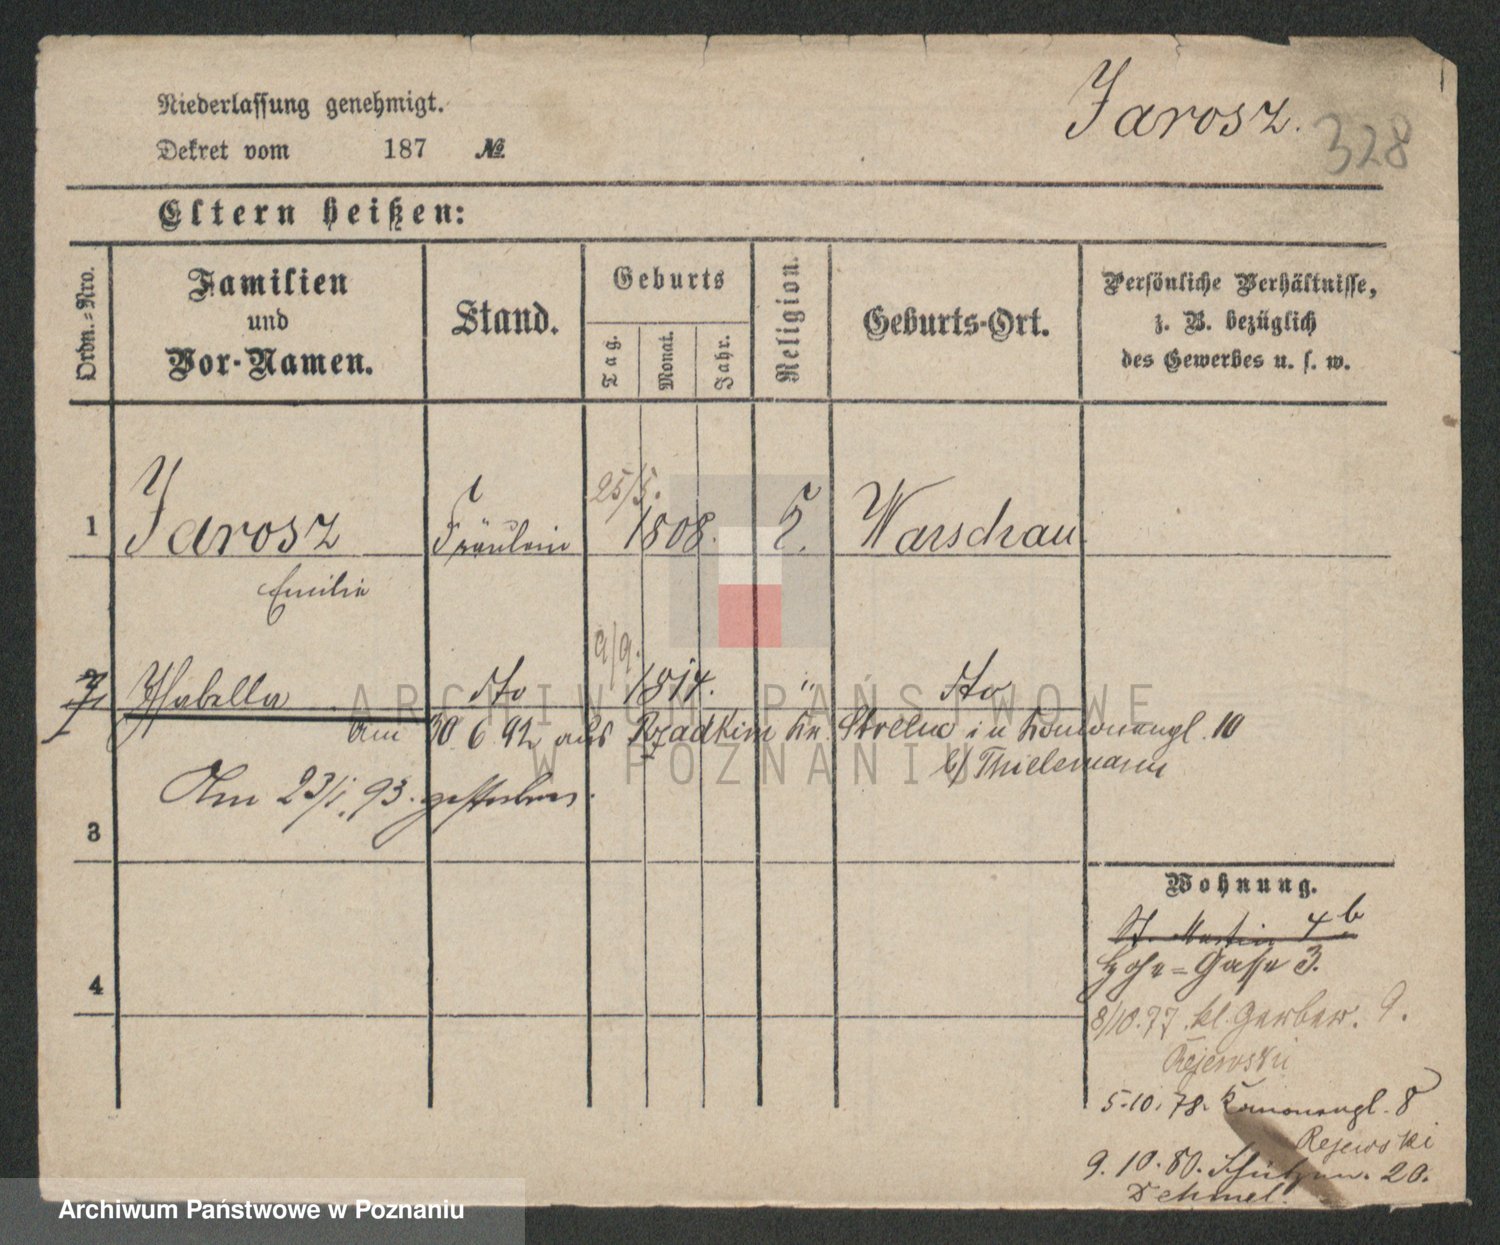 Niederlassung genehmigt.
Dekret vom 187 №
Jarosz.
328
Eltern heißen:
Ordn.-Nro.
Familien
und
Vor-Namen.
Stand.
Geburts
Tag.
Monat.
Jahr.
Religion.
Geburts-Ort.
Persönliche Verhältnisse,
z. B. bezüglich
des Gewerbes u. s. w.
25/5.
1 Jarosz Fräulein 1808. Warschau
Emilie
9/9.
2 Isabella dto 1814. " dto
am 30 6 92 aus Rzadkin Kr. Strelno in 10
b/ Thielemann
Am 23/1. 93. gestorben.
3
Wohnung.
St. Martin 4 b
Hohe-Gasse 3.
4
8/10.77. kl. Gerber. 9.
Rejewski
5.10.78. 8
Rejewski
9.10.80. Schützen. 20.
Dehmel.
ARCHIWUM PAŃSTWOWE
W POZNANIU
Archiwum Państwowe w Poznaniu